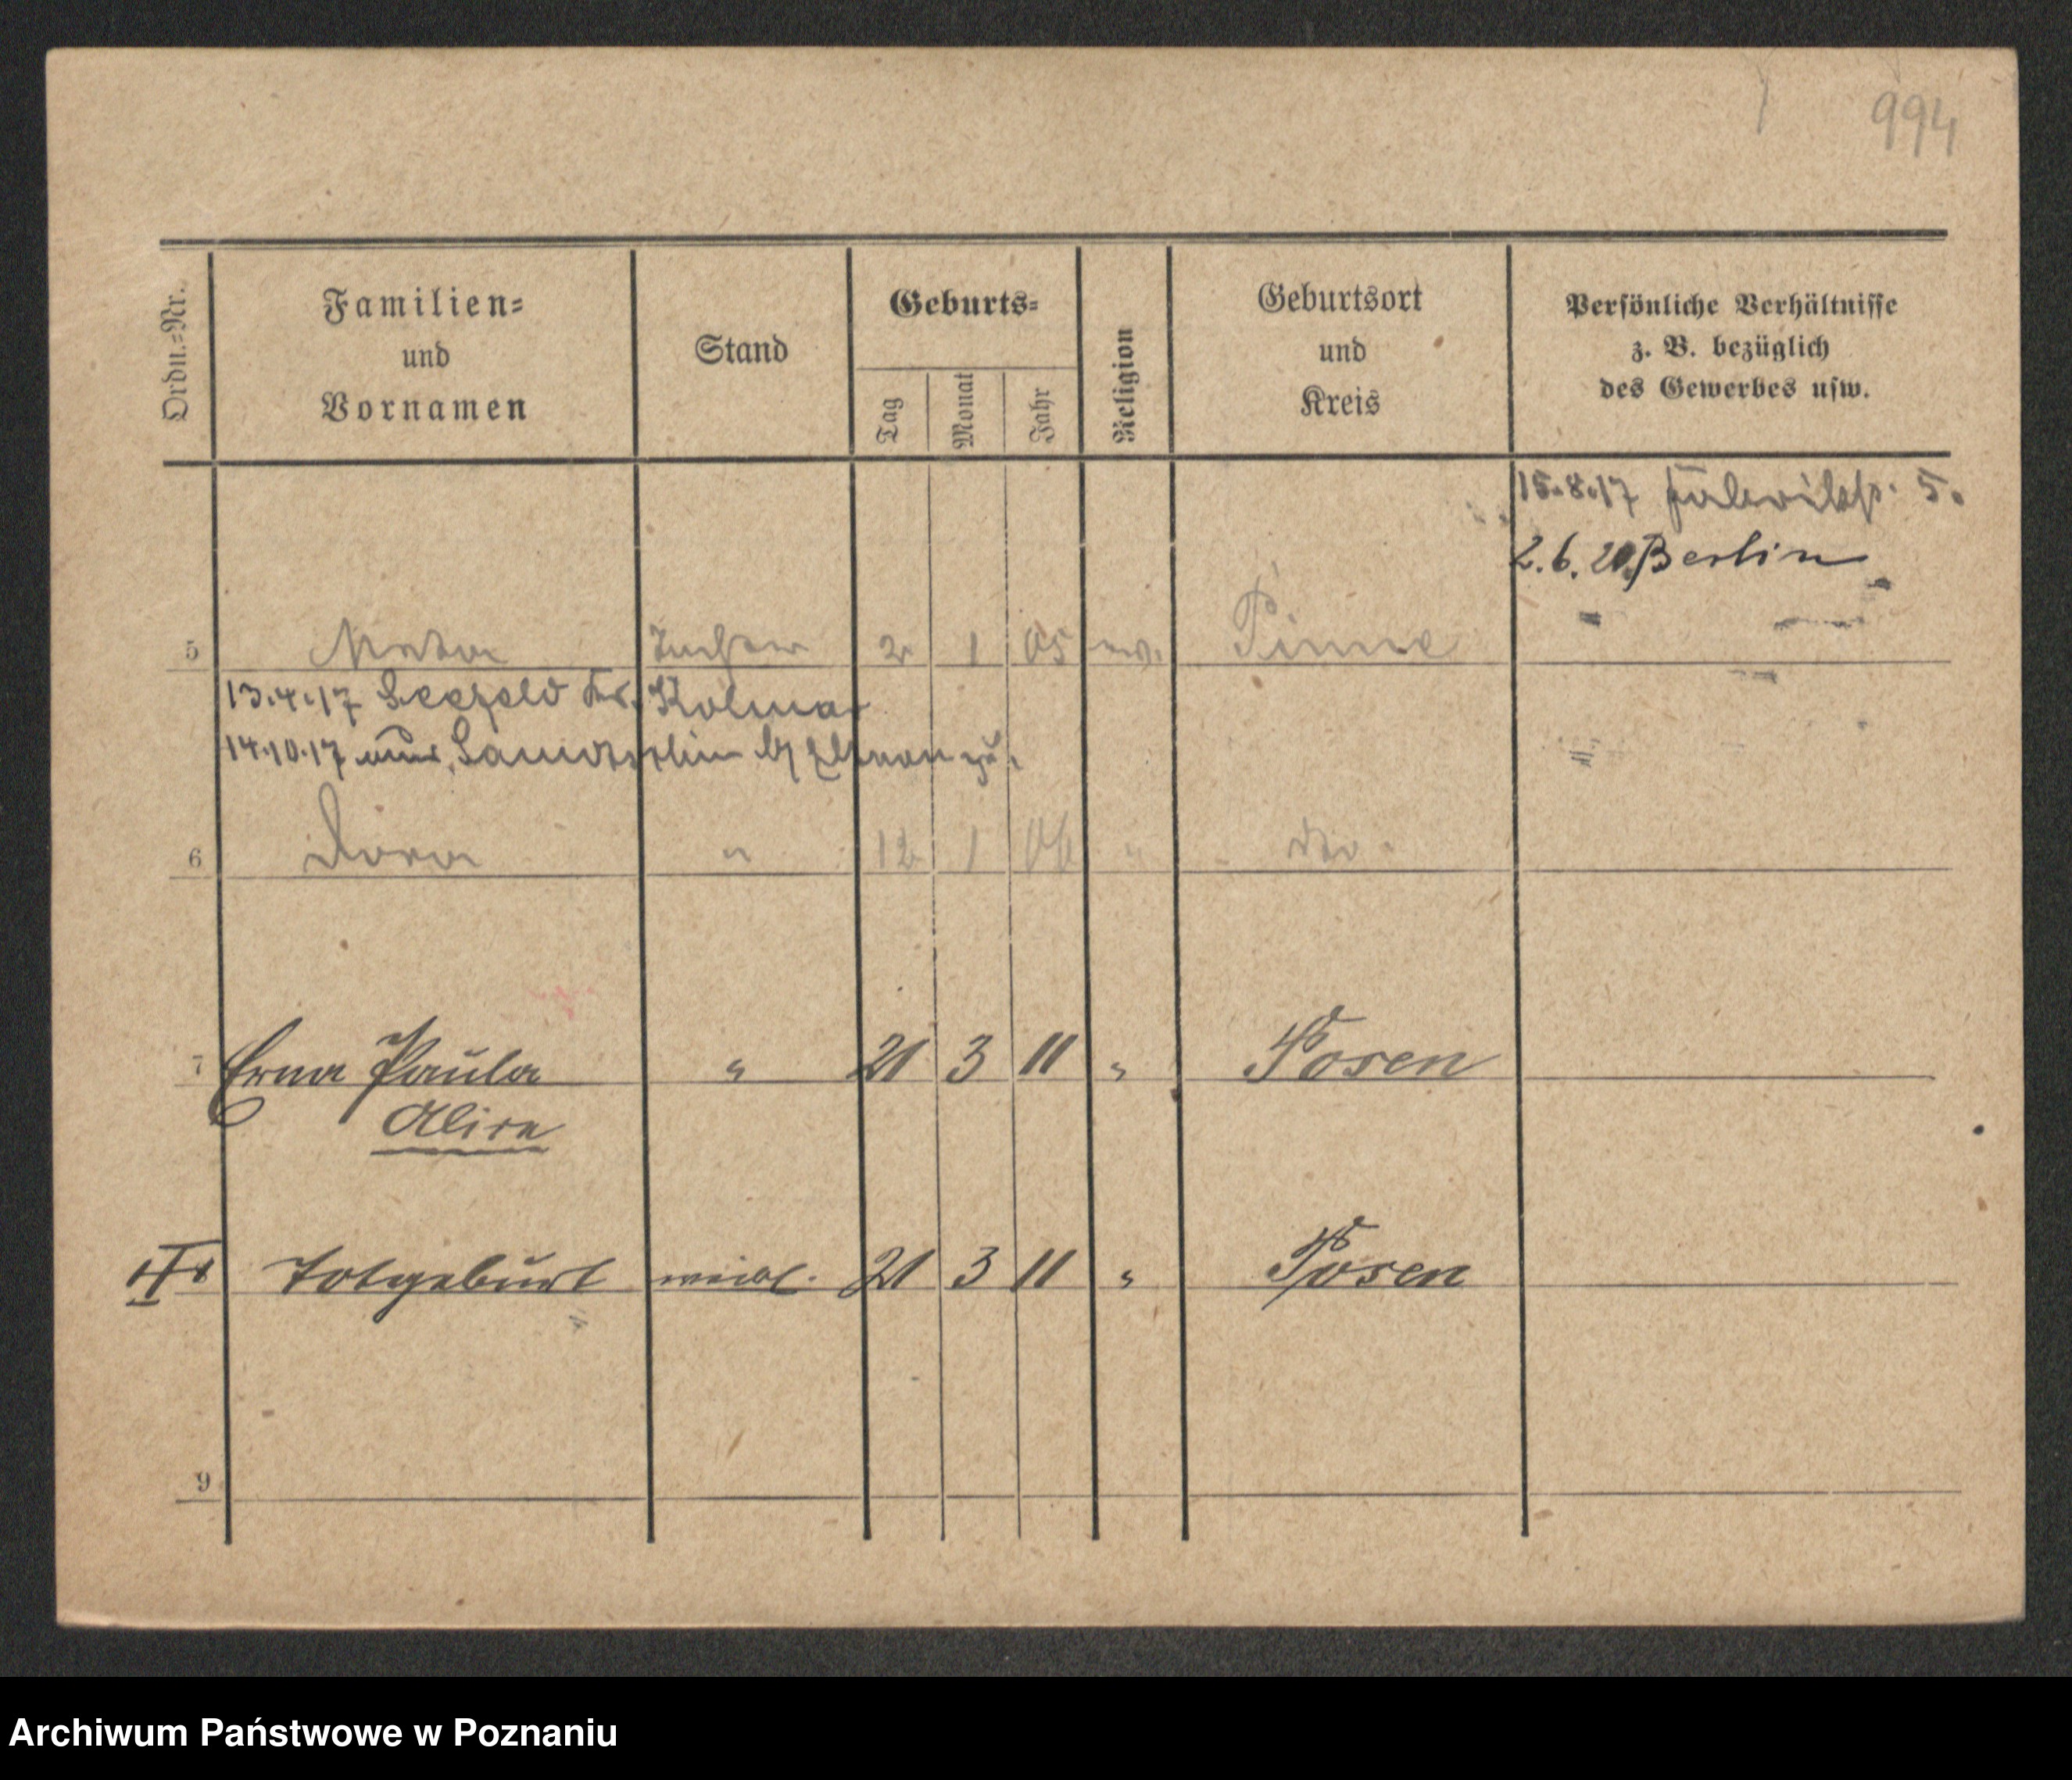 994
Ordn.-Nr.
Familien-
und
Vornamen
Stand
Geburts-
Tag
Monat
Jahr
Religion
Geburtsort
und
Kreis
Persönliche Verhältnisse
z. B. bezüglich
des Gewerbes usw.
15.8.17 5.
2.6.20 Berlin
5 Tochter 2 1 05 ev. Pinne
13.4.17 Seefeld Kr. Kolmar
14.10.17 zü.
6 Dora " 12 1 06 " dto.
7 Erna Paula " 21 3 11 " Posen
Alice
Totgeburt weibl. 21 3 11 " Posen
9
Archiwum Państwowe w Poznaniu